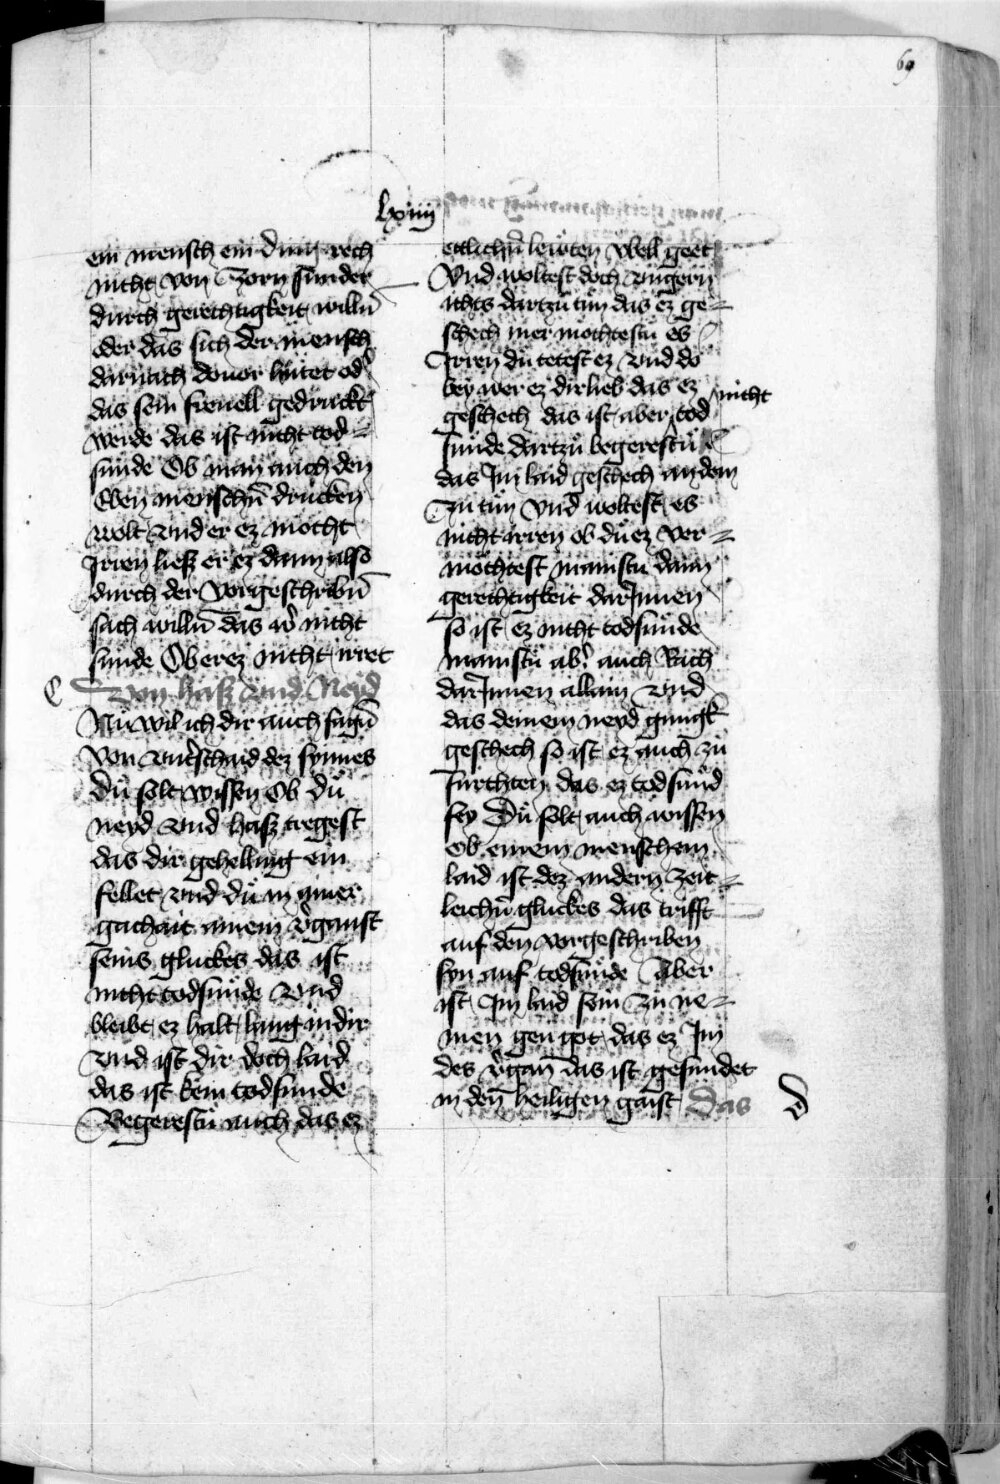 69
lxiiij
ein mensch ein ding rech
nicht von Zorn sunder
durch gerechtigkeit willn̄
oder das sich der mensch
darnach dauor hütet od̾
das sein freuell gedruckt
werde das ist nicht tod=
sunde Ob man auch den
Eben menschn̄ drucken
wolt vnd er ez mocht
Irren ließ er ez dann also
durch der vorgeschribn̄
sach willn̄ das w̾ nicht
sunde Ob er ez nicht irret
Von haß vnd Neyd
Nu wil ich dir auch sagn̄
von vnt̾schaid dez synnes
Dů solt wissen Ob dů
neyd vnd haß tregest
das dir gehellung ein
fellet vnd dů in ainer
gachait ainem v̾ganst
seins gluckes das ist
nicht todsunde Vnd
bleibt ez halt lang in dir
vnd ist dir doch laid
das ist kein todsunde
Begerestu auch das ez
ettlichn̄ lewten vbell geet
Vnd woltest doch vngern
ichts dartzu tůn das ez ge=
schech mer mochtestu es
Irren dů tetest ez vnd do
bey wer ez dir lieb das ez
geschech das ist aber tod nicht
sunde dartzů begerestů
das Im laid geschech an dem
Zu tůn vnd woltest es
nicht irren ob dů ez ver=
möchtest mainstu dann
gerechtigkeit darInnen
so ist ez nicht todsunde
mainstů ab̾ auch Rach
darInnen allain vnd
das deinem neyd gnugk
geschech so ist ez auch zů
furchten das ez todsund
sey Dů solt auch wissen
ob einem menschem
laid ist dez andern zeit=
leichn̄ gluckes das trifft
auf den vorgeschriben
syn auf todsunde Aber
ist Im laid sein zu ne=
men gen got das ez Im
des v̾gan das ist gesundet
in den̄ heiligen gaist Das